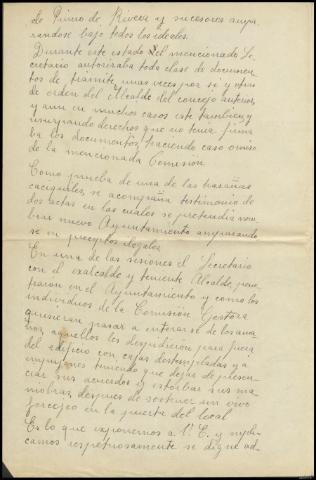 de Primo de Rivera y sucesores ampa-
randose bajo todos los ideales.
Durante este estado el mencionado Se-
cretario autorizaba toda clase de documen-
tos de trámite, unas veces por se y otras
de orden del Alcalde del concejo anterior,
y aun en muchos casos este tambien y
usurpando derechos que no tenia, firma
ba los documentos, haciendo caso omiso
de la mencionada Comisión.
Como prueba de una de las hazañas
caciquiles, se acompaña testimonio de
dos actas en las cuales se pretendia nom
brar nuevo Ayuntamiento amparando
se en preceptos ilegales.
En una de las sesiones el Secretario
con el exalcalde y teniente Alcalde, pene
traron en el Ayuntamiento y como los
individuos de la Comisión Gestora
quisieran pasar a enterarse de los
aquellos les despidieron para fuera
del edificio con cajas destempladas y a
empujones teniendo que dejar de presen-
ciar sus acuerdos y estorbar sus ma
niobras, despues de sostener un vivo
forcejeo en la puerta del local.
Es lo que exponemos a V. E. y supli-
camos respetuosamente se digne ad-